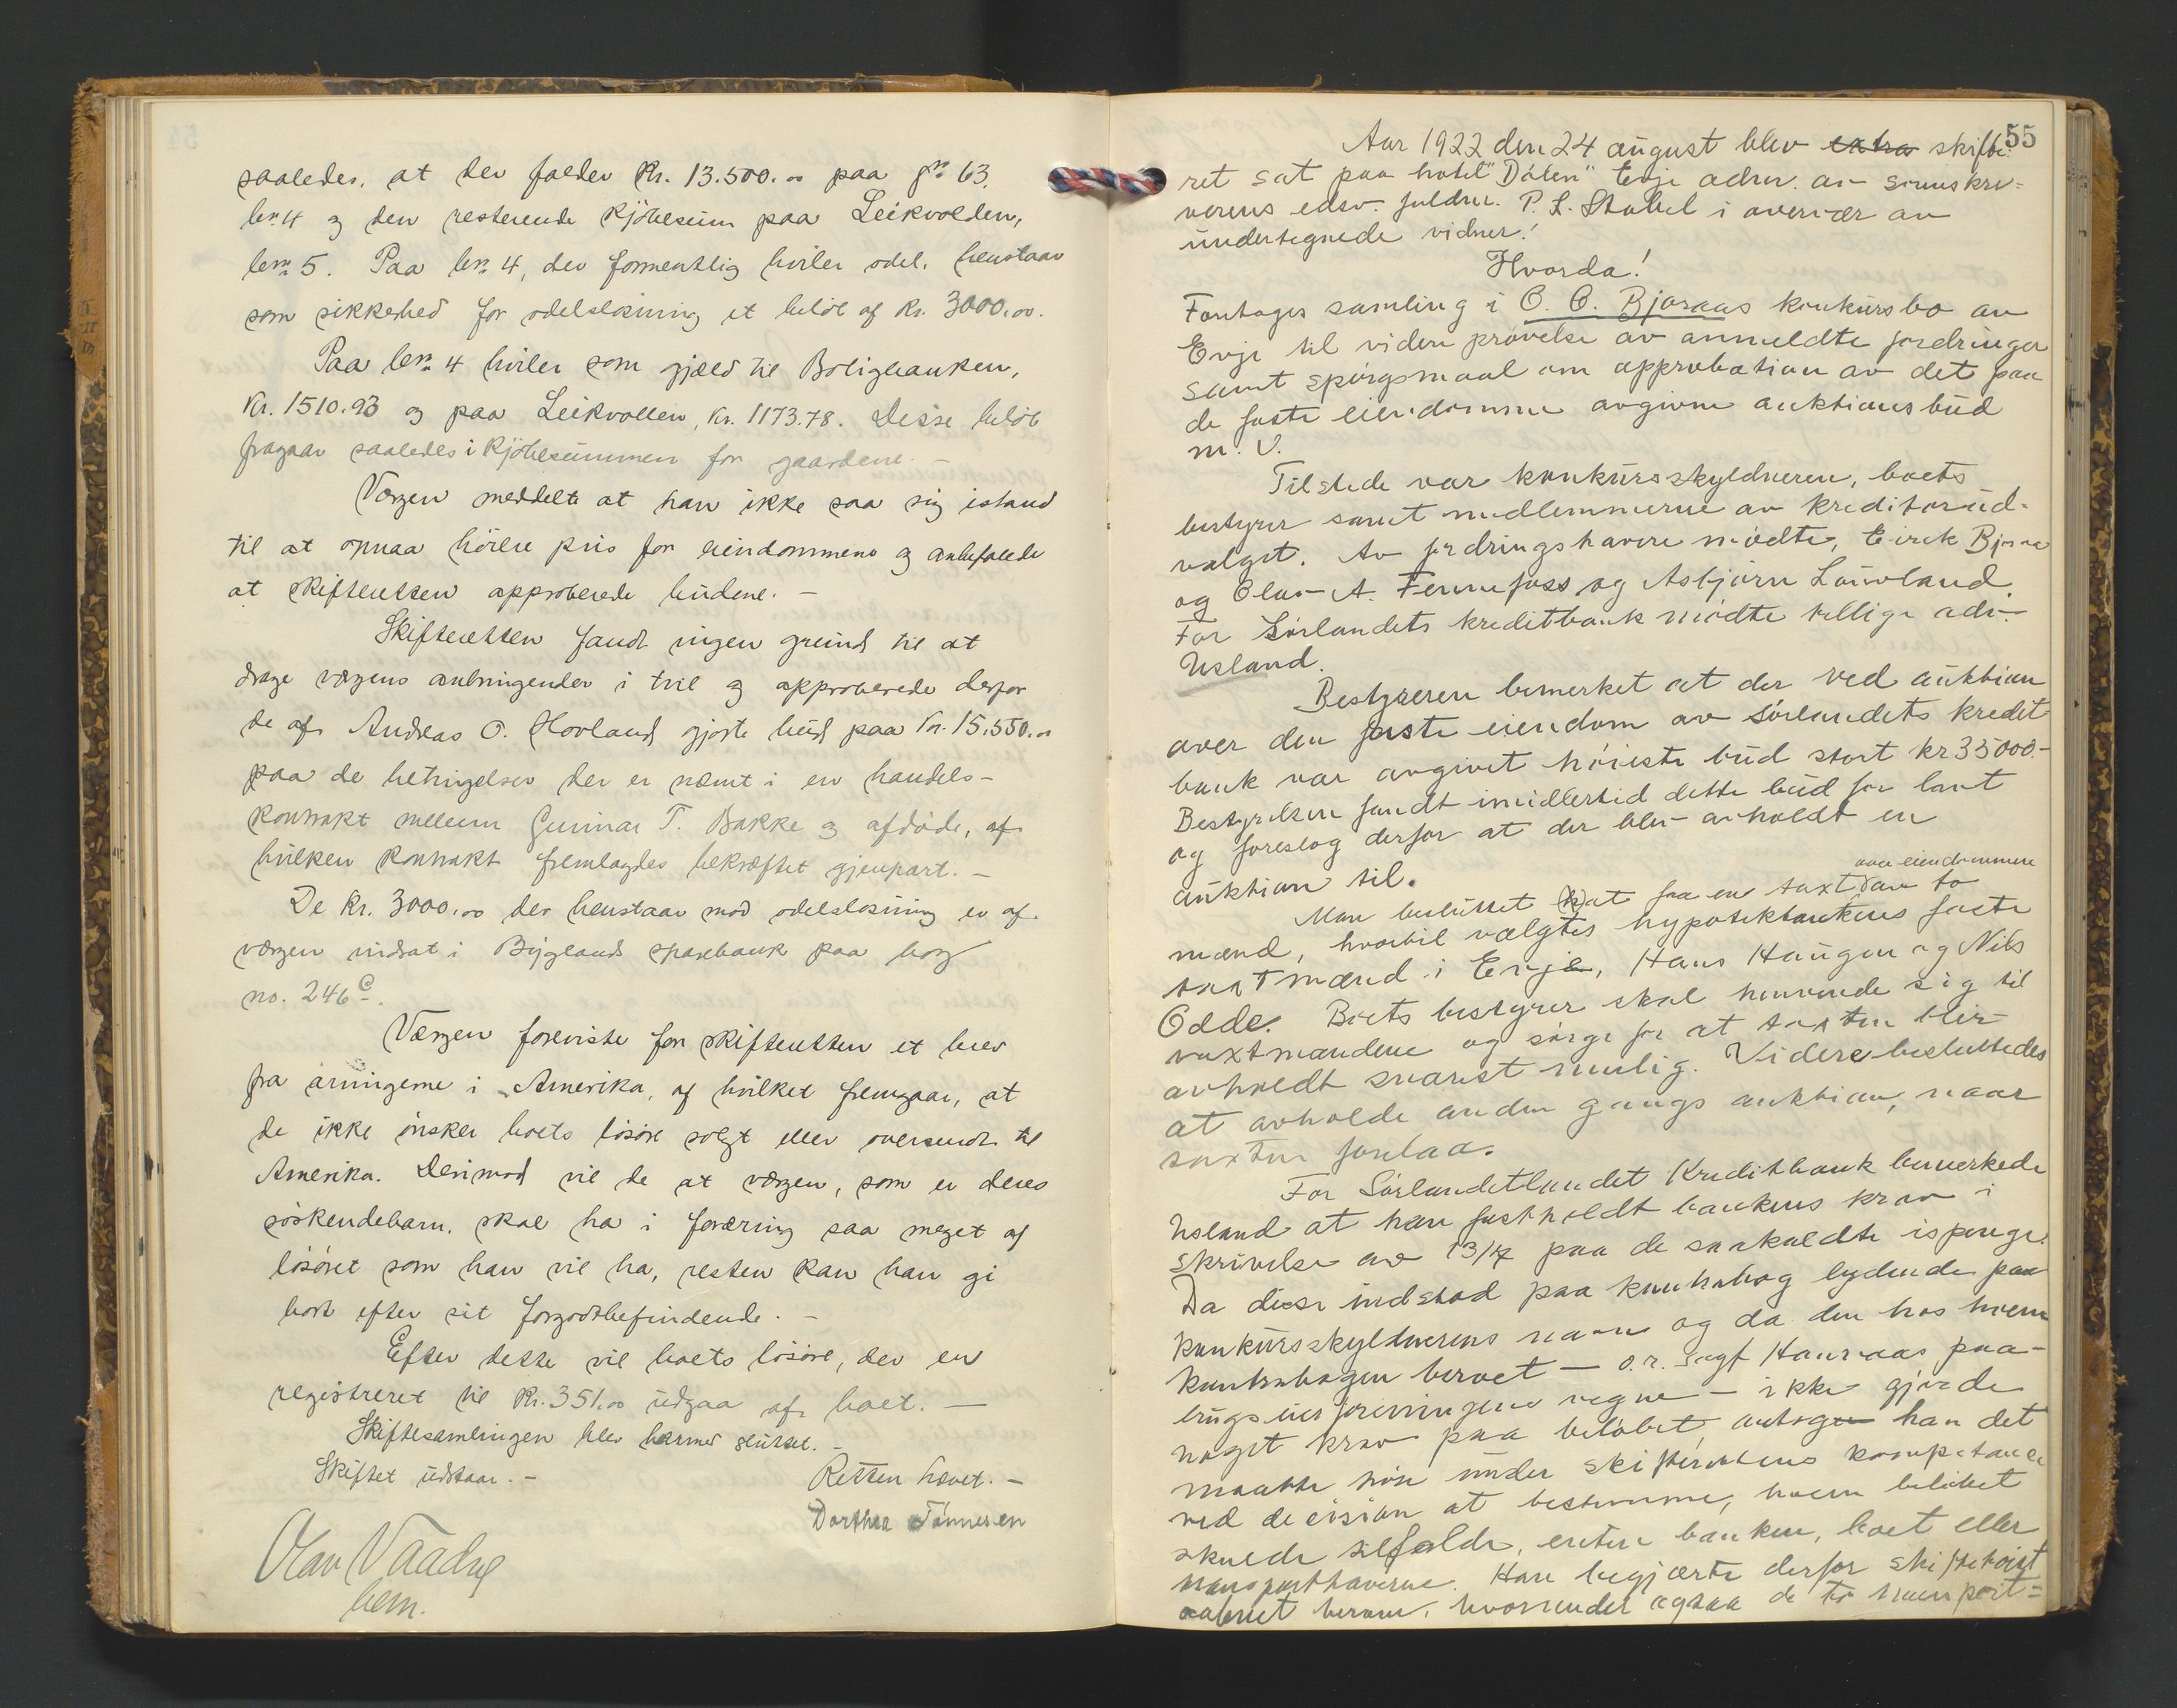 saaledes, at der falder Kr. 13.500.00 paa gn 63,
bn. 4 og den resterende kjøbesum paa Leikvolden,
brn 5. Paa bn. 4, der formentlig hviler odel, henstaar
som sikkerhed for odelsløsning et beløb af Kr. 3000.00.
Paa brn 4 hviler som gjæld til Boligbanken,
Kr. 1510.93 og paa Leikvollen, Kr. 1173.78. Disse beløb
fragaar saaledes i kjøbesummen for gaardene. –
Værgen meddelte at han ikke saa sig istand
til at opnaa høiere pris for eiendommene og anbefalede
at skifteretten approberede budene. –
Skifteretten fandt ingen grund til at
drage værgens anbringender i tvil og approberede derfor
de af Andreas O. Hovland gjorte bud paa Kr. 15.550.00
paa de betingelser der er nævnt i en handels-
kontrakt mellem Gunnar T. Bakke og afdøde, af
hvilken kontrakt fremlagdes bekræftet gjenpart. –
De Kr. 3000.00 der henstaar mod odelsløsning er af
værgen indsat i Byglands sparebank paa bog
no. 246 C.
Værgen foreviste for skifteretten et brev
fra arvingerne i Amerika, af hvilket fremgaar, at
de ikke ønsker boets løsøre solgt eller oversendt til
Amerika. Derimod vil de at værgen, som er deres
søskendebarn, skal ha i foræring saa meget af
løsøret som han vil ha, resten kan han gi
bort efter sit forgodtbefindende. –
Efter dette vil boets løsøre, der er
registreret til Kr. 351.00 udgaa af boet. –
Skiftesamlingen blev hermed sluttet. –
Skiftet udstaar. –
Retten hævet. –
Dorthea Tønnesen
Olav Vaadog
bem.
55
Aar 1922 den 24 august blev extra skifte-
ret sat paa hotel "Dølen" Evje adm. av sorenskri-
verens edsv. fuldm. P. L. Stabel i overvær av
undertegnede vidner!
Hvorda!
Foretages samling i O. O. Bjoraas konkursbo av
Evje til videre prøvelse av anmeldte fordringer
samt spørgsmaal om approbation av det paa
de faste eiendomme avgivne auktionsbud
m. V.
Tilstede var konkursskyldneren, boets
bestyrer samt medlemmerne av kreditorud-
valget. Av fordringshavere mødte, Eirik Bjoraa
og Olav A. Fennefoss og Asbjørn Lauvland.
For Sørlandets kreditbank mødte tillige adv.
Usland.
Bestyreren bemerket at der ved auktion
over den faste eiendom av Sørlandets kredit
bank var avgivet høieste bud stort kr 35000.-
Bestyrelsen fandt imidlertid dette bud for lavt
og foreslog derfor at der blev avholdt en
auktion til.
over eiendommene
Man besluttet at faa en taxt av to
mænd, hvortil valgtes hypotekbankens faste
taxtmænd i Evje, Hans Haugen og Nils
Odde. Boets bestyrer skal henvende sig til
taxtmændene og sørge for at taxten blir
avholdt snarest mulig. Videre besluttedes
at avholde anden gangs auktion, naar
taxten forelaa.
For Sørlandetlandet Kreditbank bemerkede
Usland at han fastholdt bankens krav i
skrivelse av 13/7 paa de saakaldte ispenge.
Da disse indstod paa kontrabog lydende paa
konkursskyldnerens navn og da den hos hvem
kontrabogen beroet – o.r. sagf Hauraas paa
brugseierforeningens vegne – ikke gjorde
noget krav paa beløbet, antog han det
maatte høre under skifterettens kompetance
ved decision at bestemme, hvem beløbet
skulde tilfalde, enten banken, boet eller
transporthaverne. Han begjærte derfor
berame, hvorunder ogsaa de to transport=